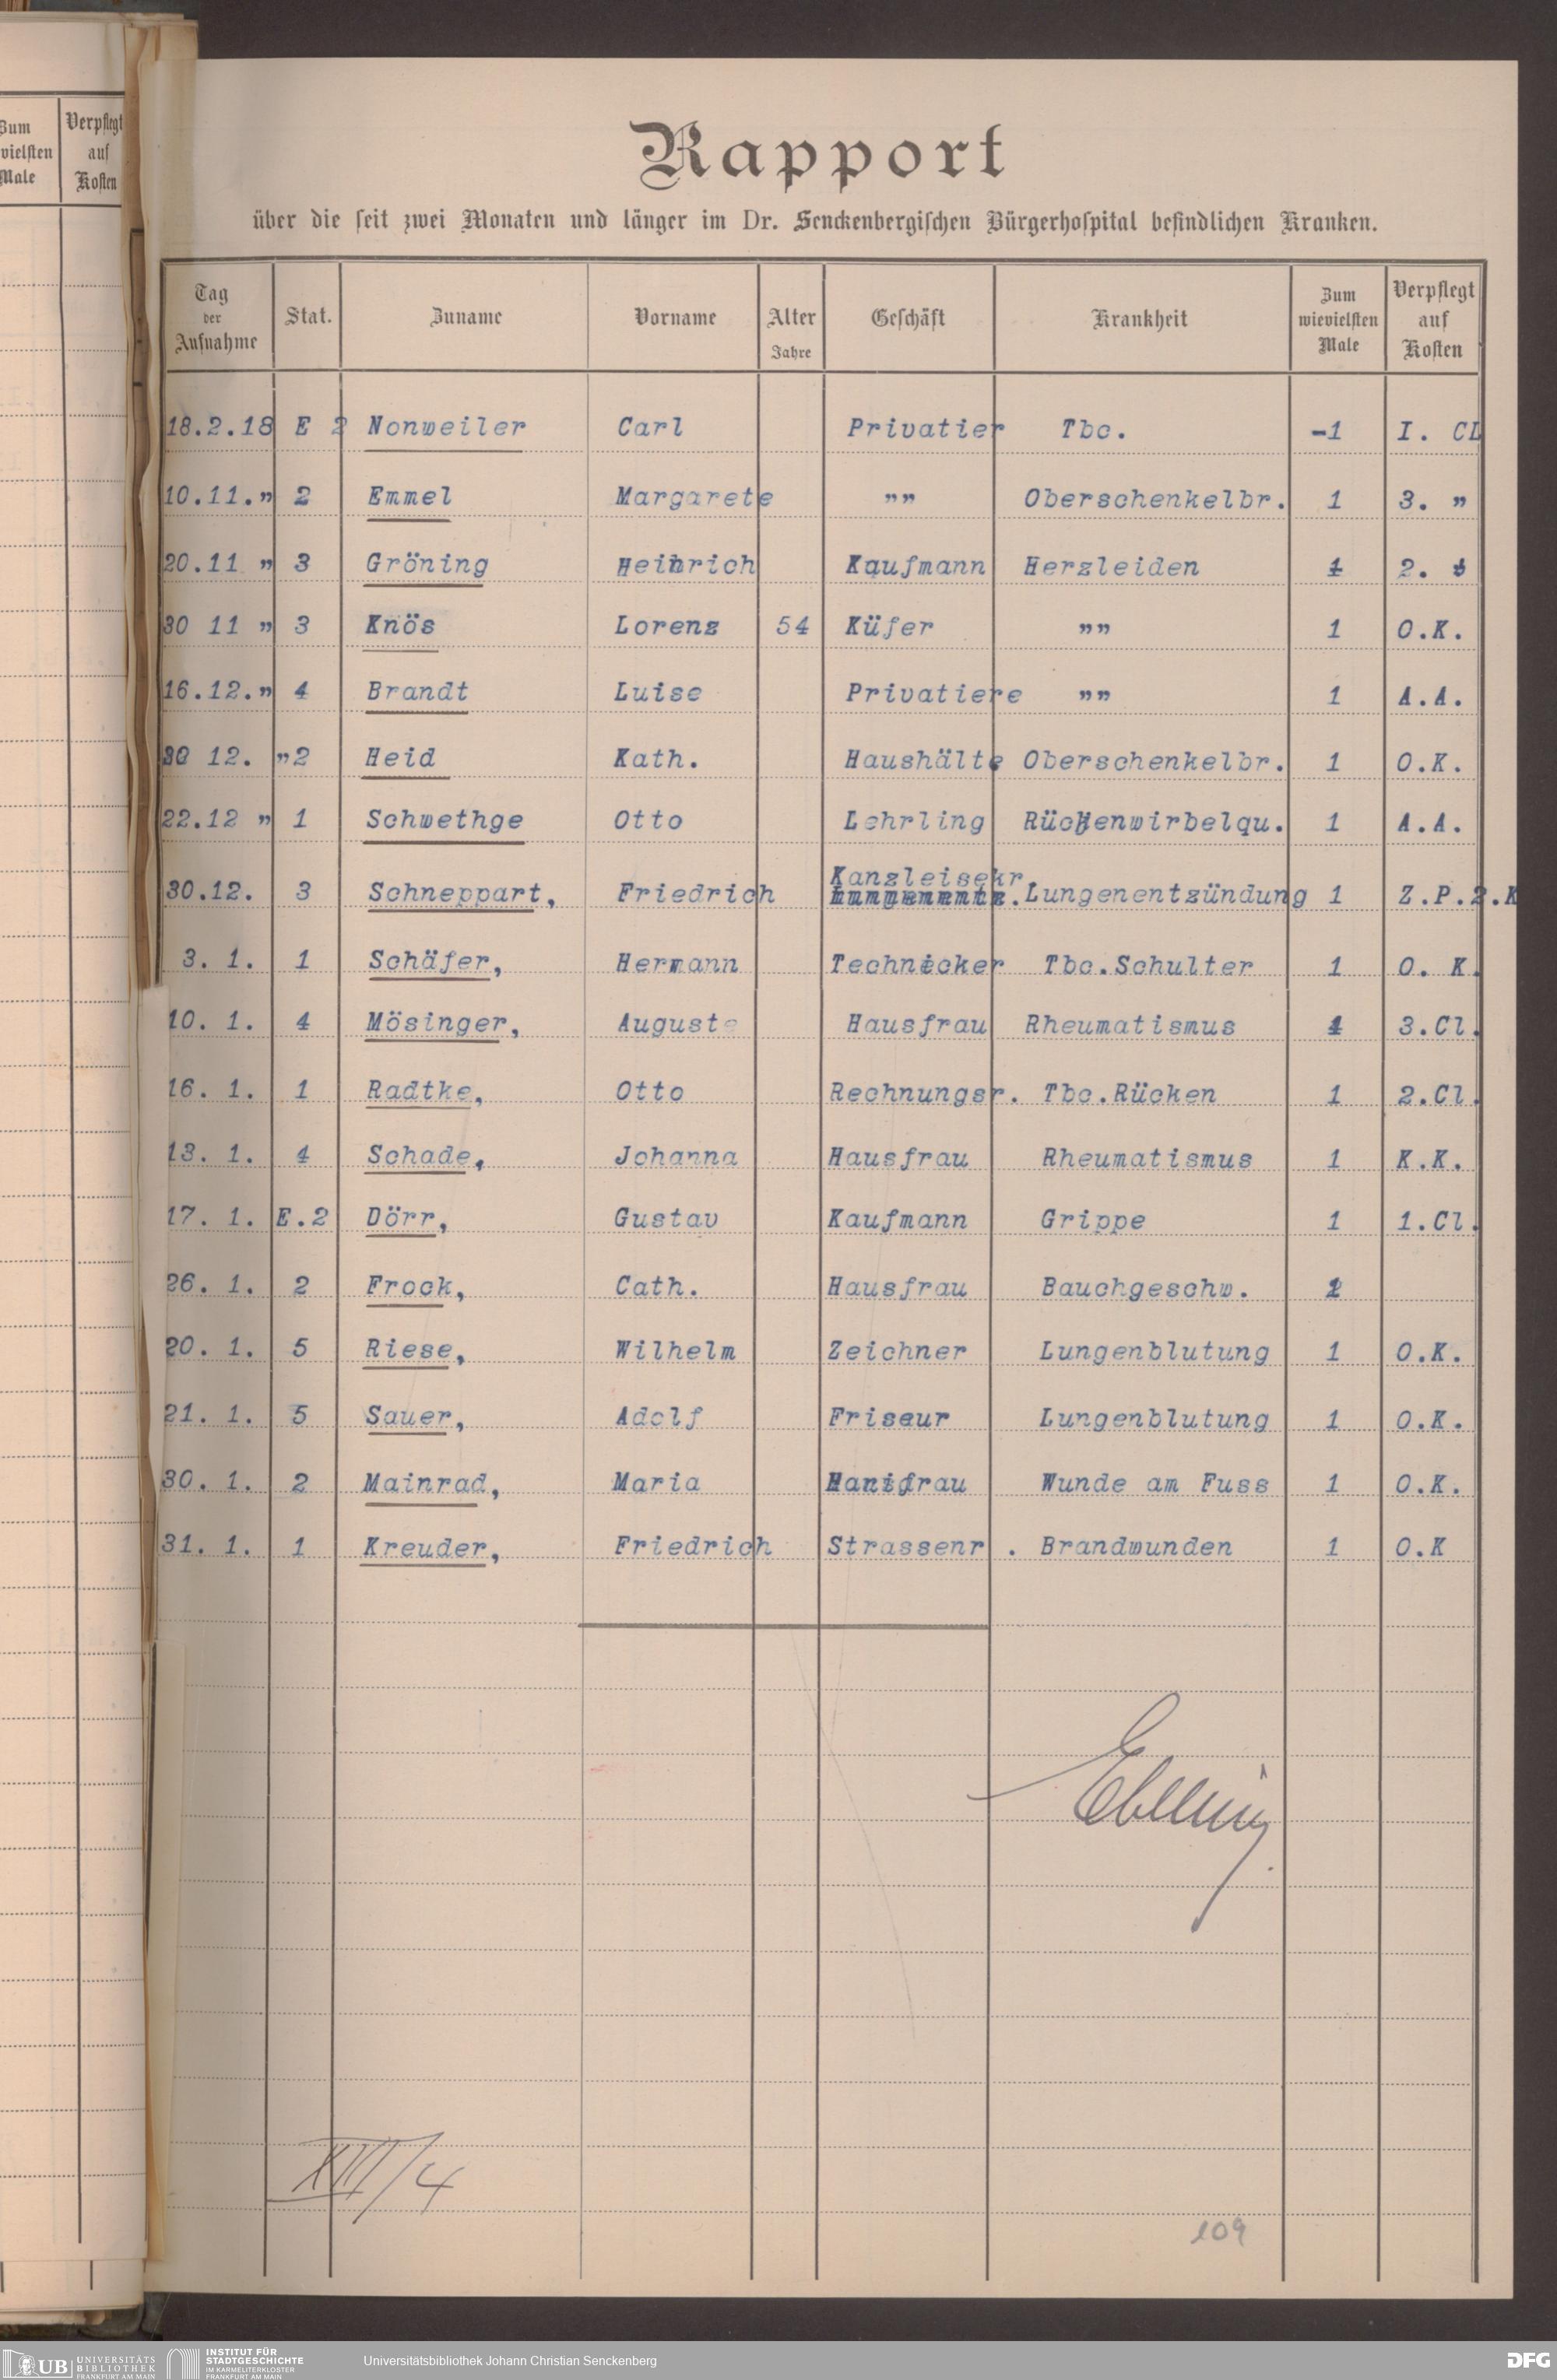 Zum
wievielsten
Male
Verpflegt
auf
Kosten
Rapport
über die seit zwei Monaten und länger im Dr. Senckenbergischen Bürgerhospital befindlichen Kranken.
Tag der Aufnahme Stat. Zuname Vorname Alter Jahre Geschäft Krankheit Zum wievielsten Male Verpflegt auf Kosten
18.2.18 E 2 Nonweiler Carl Privatier Tbc. -1 I. Cl
10.11.„ 2 Emmel Margarete „„ Oberschenkelbr. 1 3. „
20.11 „ 3 Gröning Heinrich Kaufmann Herzleiden 1 2.
30 11 „ 3 Knös Lorenz 54 Küfer „„ 1 O.K.
16.12.„ 4 Brandt Luise Privatiere „„ 1 A.A.
12. „2 Heid Kath. Haushälte Oberschenkelbr. 1 O.K.
22.12 „ 1 Schwethge Otto Lehrling Rückenwirbelqu. 1 A.A.
30.12. 3 Schneppart, Friedrich Kanzleisekr. Lungenentzündung 1 Z.P.2.K
3. 1. 1 Schäfer, Hermann Technicker Tbc.Schulter 1 O. K.
10. 1. 4 Mösinger, Auguste Hausfrau Rheumatismus 1 3.Cl.
16. 1. 1 Radtke, Otto Rechnungsr. Tbc.Rücken 1 2.Cl.
13. 1. 4 Schade, Johanna Hausfrau Rheumatismus 1 K.K.
17. 1. E.2 Dörr, Gustav Kaufmann Grippe 1 1.Cl.
26. 1. 2 Frock, Cath. Hausfrau Bauchgeschw.
20. 1. 5 Riese, Wilhelm Zeichner Lungenblutung 1 O.K.
21. 1. 5 Sauer, Adolf Friseur Lungenblutung 1 O.K.
30. 1. 2 Mainrad, Maria Wunde am Fuss 1 O.K.
31. 1. 1 Kreuder, Friedrich Strassenr . Brandwunden 1 O.K
XVII/4
109
UB UNIVERSITÄTS
BIBLIOTHEK
FRANKFURT AM MAIN
INSTITUT FÜR
STADTGESCHICHTE
IM KARMELITERKLOSTER
FRANKFURT AM MAIN
Universitätsbibliothek Johann Christian Senckenberg
DFG